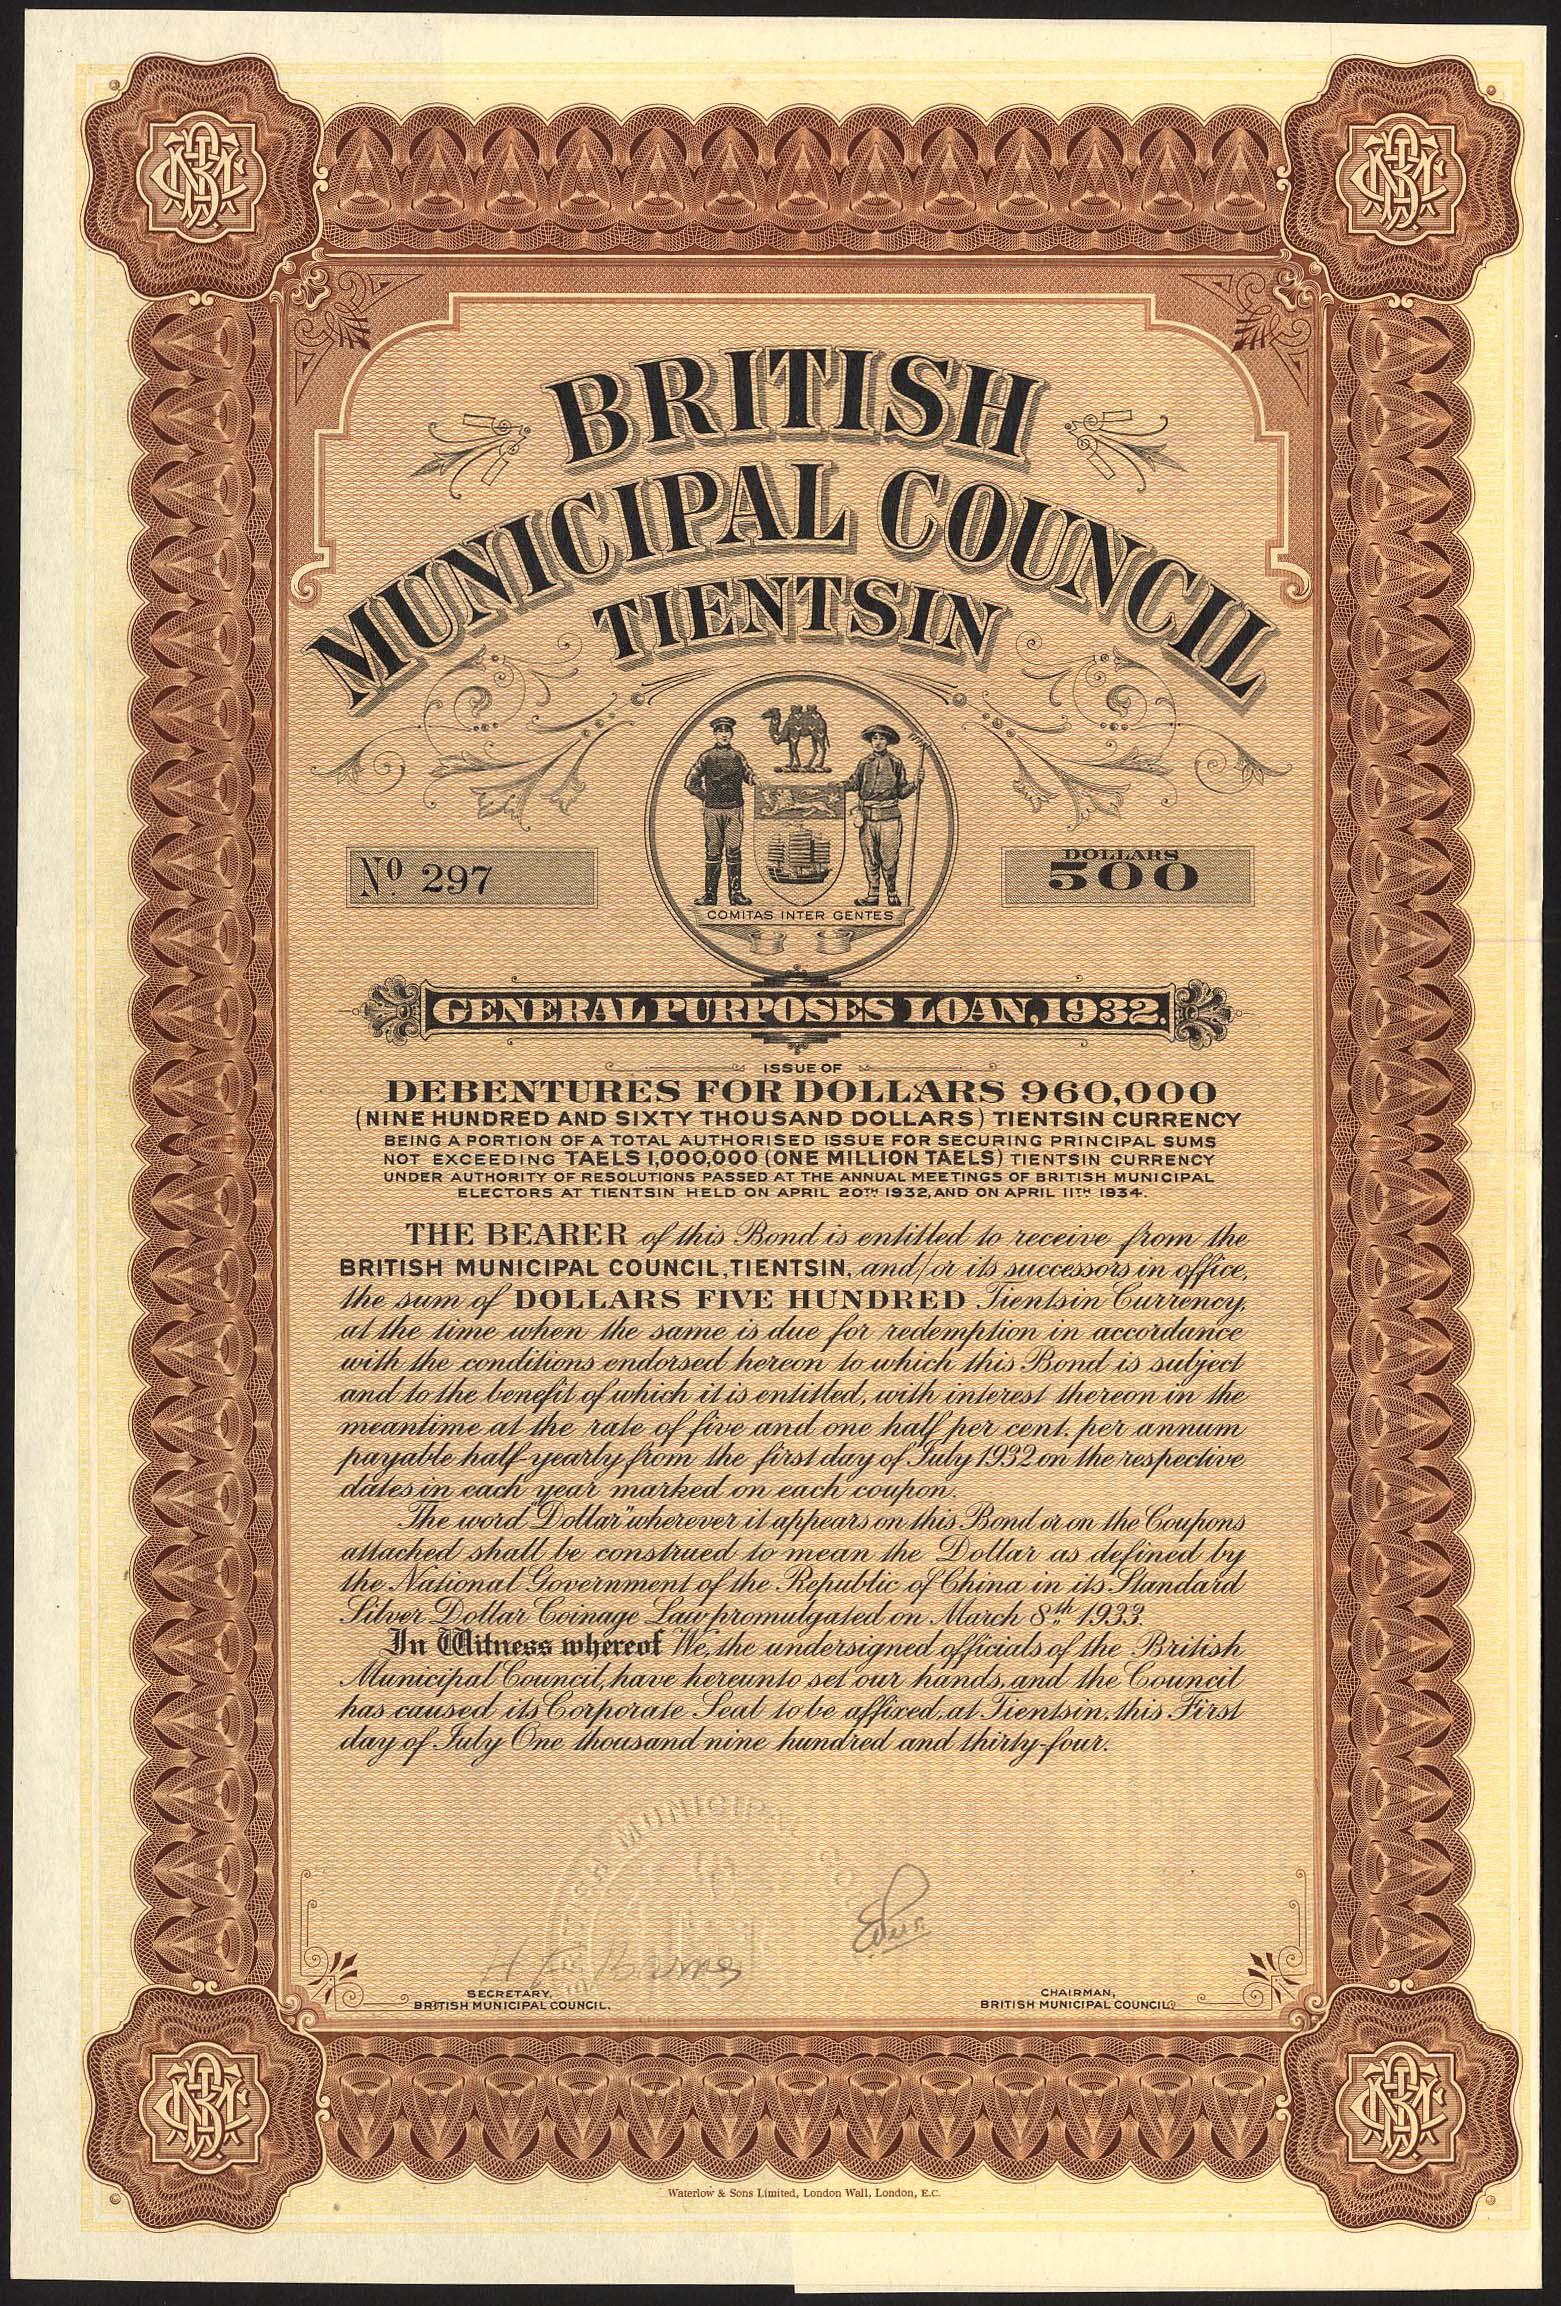 BRITISH
MUNICIPAL COUNCIL
TIENTSIN
No. 297
DOLLARS
500
COMITAS INTER GENTES
GENERAL PURPOSES LOAN, 1932.
ISSUE OF
DEBENTURES FOR DOLLARS 960,000
(NINE HUNDRED AND SIXTY THOUSAND DOLLARS) TIENTSIN CURRENCY
BEING A PORTION OF A TOTAL AUTHORISED ISSUE FOR SECURING PRINCIPAL SUMS
NOT EXCEEDING TAELS 1,000,000 (ONE MILLION TAELS) TIENTSIN CURRENCY
UNDER AUTHORITY OF RESOLUTIONS PASSED AT THE ANNUAL MEETINGS OF BRITISH MUNICIPAL
ELECTORS AT TIENTSIN HELD ON APRIL 20TH 1932, AND ON APRIL 11TH 1934.
THE BEARER of this Bond is entitled to receive from the
BRITISH MUNICIPAL COUNCIL, TIENTSIN, and/or its successors in office,
the sum of DOLLARS FIVE HUNDRED Tientsin Currency,
at the time when the same is due for redemption in accordance
with the conditions endorsed hereon to which this Bond is subject
and to the benefit of which it is entitled, with interest thereon in the
meantime at the rate of five and one half per cent. per annum
payable half-yearly from the first day of July 1932 on the respective
dates in each year marked on each coupon.
The word "Dollar" wherever it appears on this Bond or on the Coupons
attached shall be construed to mean the Dollar as defined by
the National Government of the Republic of China in its Standard
Silver Dollar Coinage Law promulgated on March 8th 1933.
In Witness whereof We, the undersigned officials of the British
Municipal Council, have hereunto set our hands, and the Council
has caused its Corporate Seal to be affixed, at Tientsin, this First
day of July One thousand nine hundred and thirty-four.
MUNICIPAL
SECRETARY,
BRITISH MUNICIPAL COUNCIL.
CHAIRMAN,
BRITISH MUNICIPAL COUNCIL.
Waterlow & Sons Limited, London Wall, London, E.C.